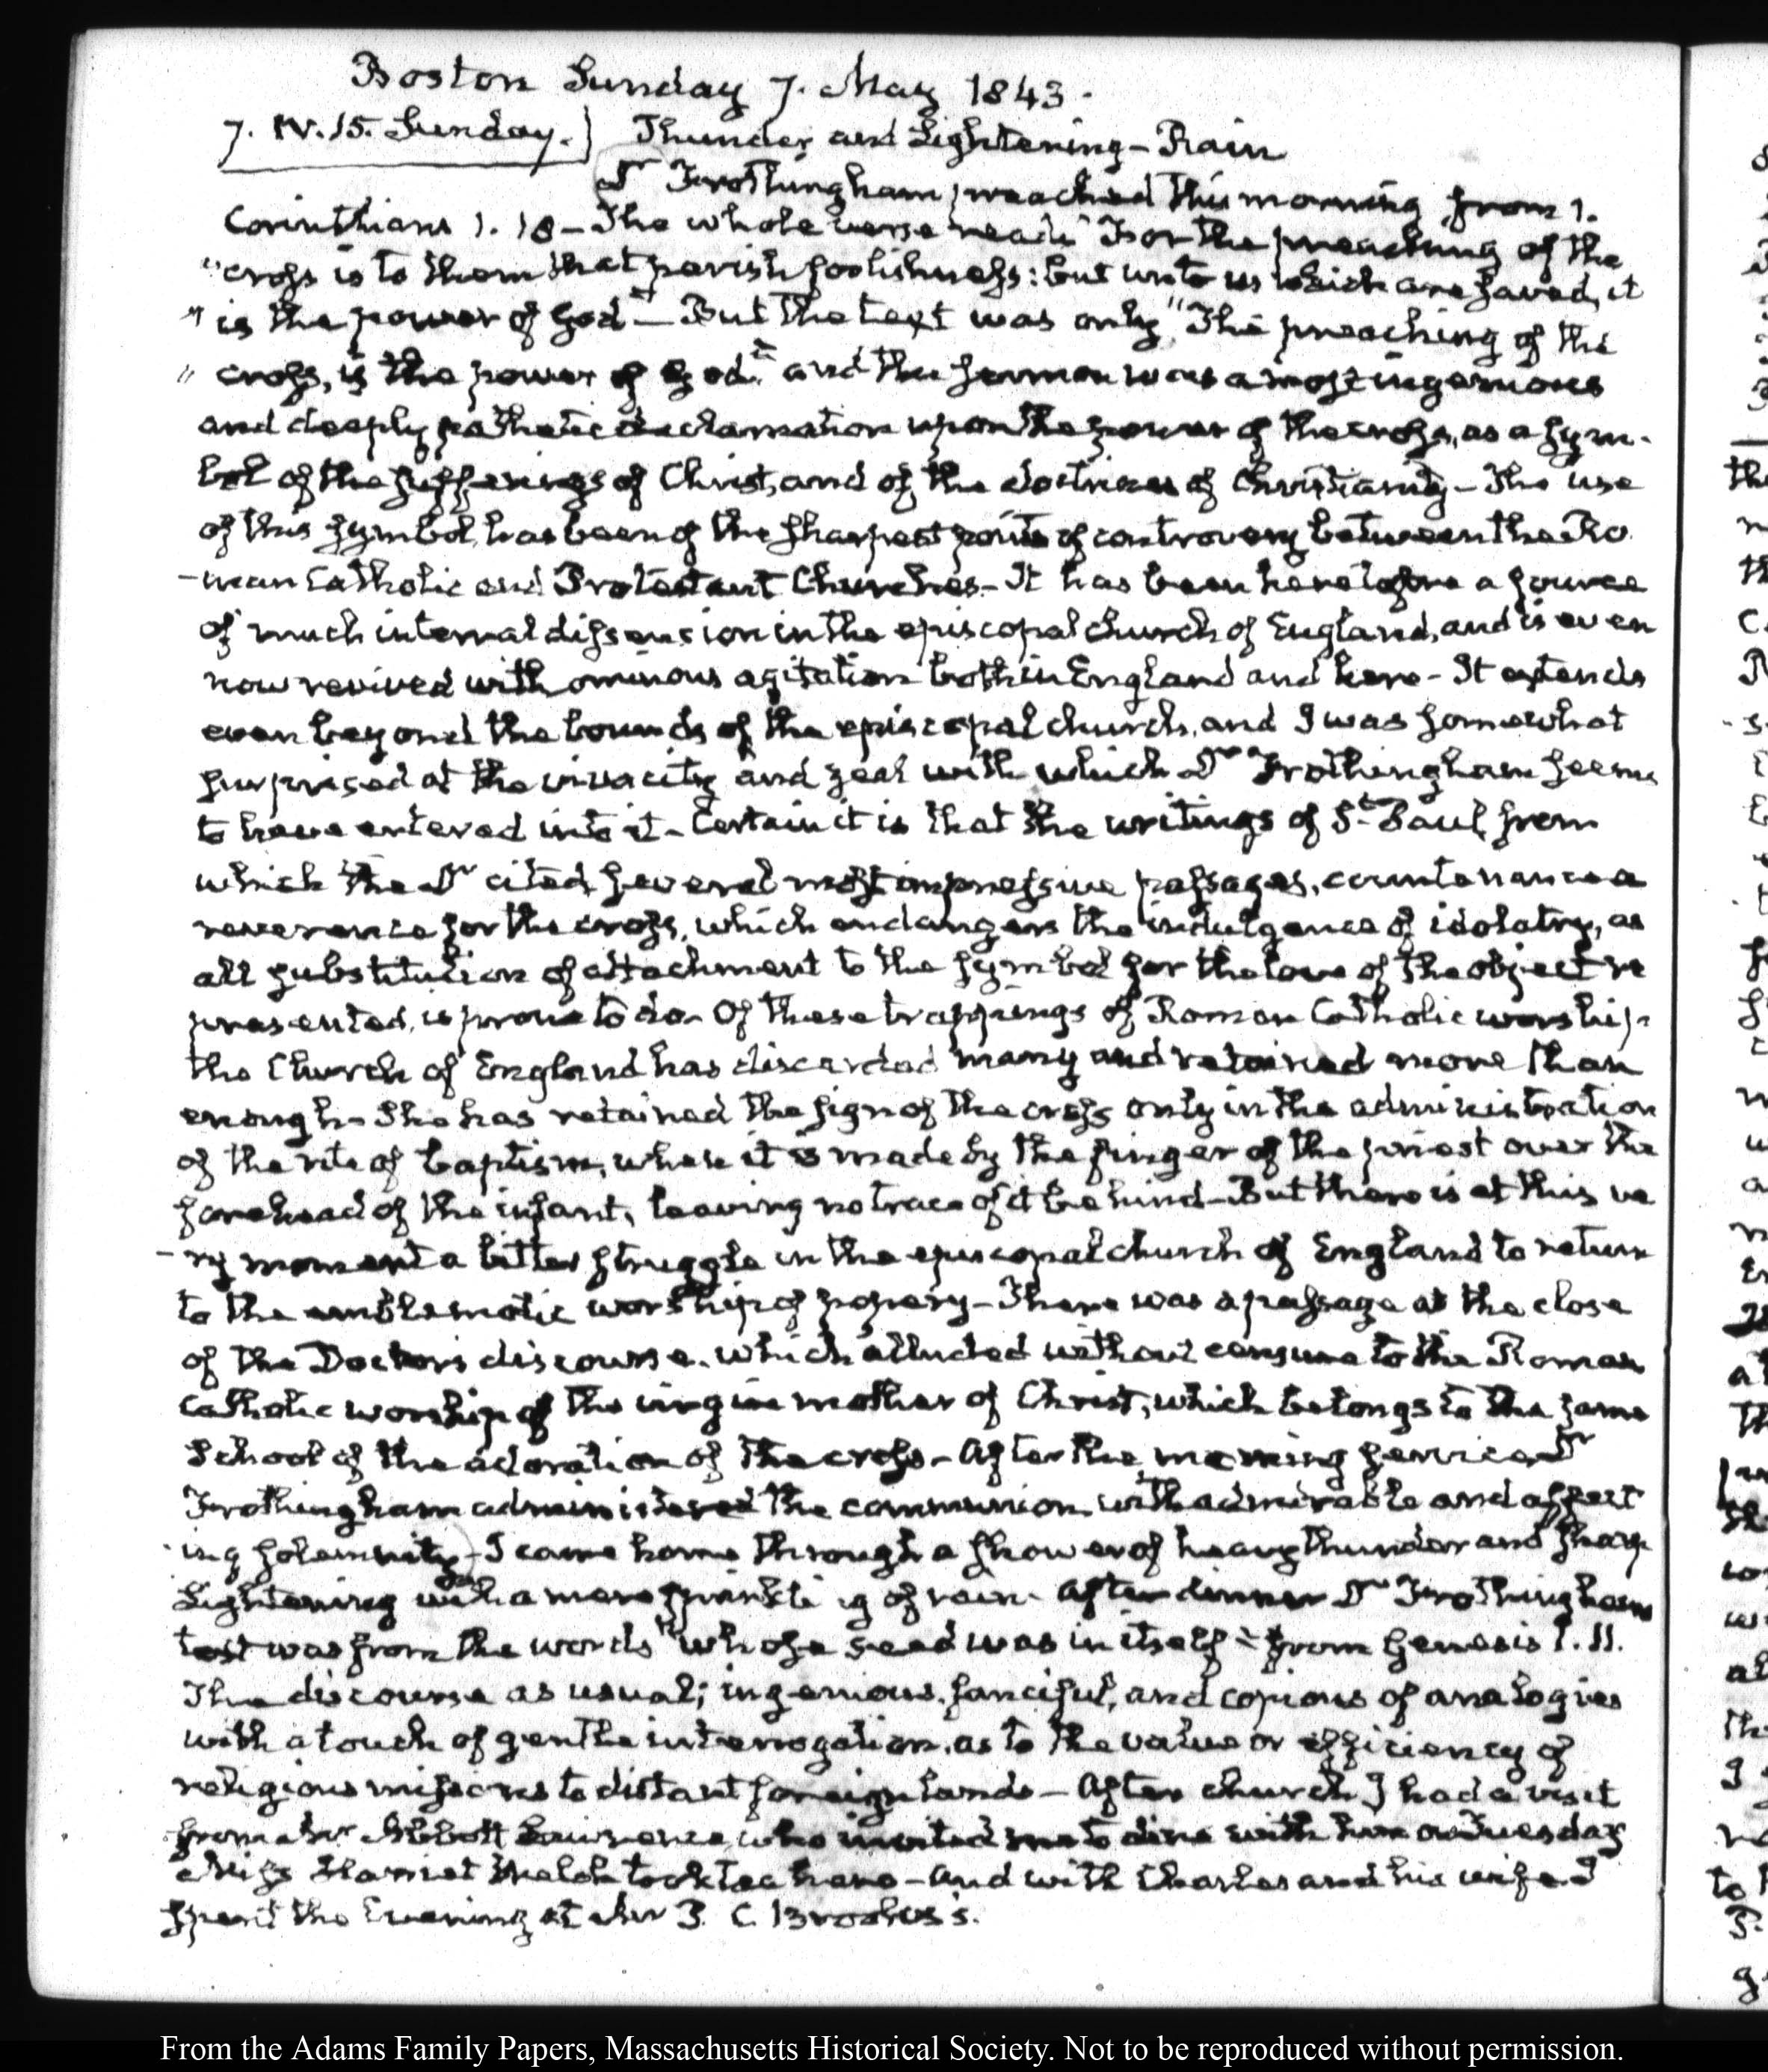 Boston Sunday 7. May 1843.
7. IV.15. Sunday. } Thunder and Lightening – Rain
Dr Frothingham preached this morning from 1.
Corinthians 1. 18 – The whole verse reads "For the preaching of the
"cross is to them that perish foolishness: but unto us which are saved, it
"is the power of God" – But the text was only "The preaching of the
"cross, is the power of God." and the sermon was a most ingenious
and deeply pathetic declamation upon the power of the cross, as a sym-
bol of the sufferings of Christ, and of the doctrines of Christianity – The use
of this symbol, has been of the sharpest points of controversy between the Ro
-man Catholic and Protestant Churches – It has been heretofore a source
of much internal dissension in the episcopal church of England, and is even
now revived with ominous agitation both in England and here – It extends
even beyond the bounds of the episcopal church, and I was somewhat
surprised at the vivacity and zeal with which Dr Frothingham seems
to have entered into it – Certain it is that the writings of St. Paul, from
which the Dr cited several most impressive passages, countenance a
reverence for the cross, which endangers the indulgence of idolatry, as
all substitution of attachment to the symbol for the love of the object re
presented, is prone to do – Of these trappings of Roman Catholic worship
the Church of England has discarded many and retained more than
enough – She has retained the sign of the cross only in the administration
of the rite of baptism, where it is made by the finger of the priest over the
forehead of the infant, leaving no trace of it behind – But there is at this ve
-ry moment a bitter struggle in the episcopal church of England to return
to the emblematic worship of popery – There was a passage at the close
of the Doctor's discourse, which alluded without censure to the Roman
Catholic worship of the virgin mother of Christ, which belongs to the same
School of the adoration of the cross – After the morning service Dr
Frothingham administered the communion with admirable and affect
-ing solemnity – I came home through a shower of heavy thunder and sharp
Lightening with a mere sprinkling of rain. After dinner Dr Frothinghams
text was from the words "whose seed was in itself" from Genesis 1. 11.
The discourse as usual, ingenious, fanciful, and copious of analogies
with a touch of gentle interrogation, as to the value or efficiency of
religious missions to distant foreign lands – After church I had a visit
from Mr Abbott Lawrence who invited me to dine with him on Tuesday
Miss Harriet Welch took tea here – And with Charles and his wife I
spent the Evening at Mr P. C. Brooks's.
From the Adams Family Papers, Massachusetts Historical Society. Not to be reproduced without permission.